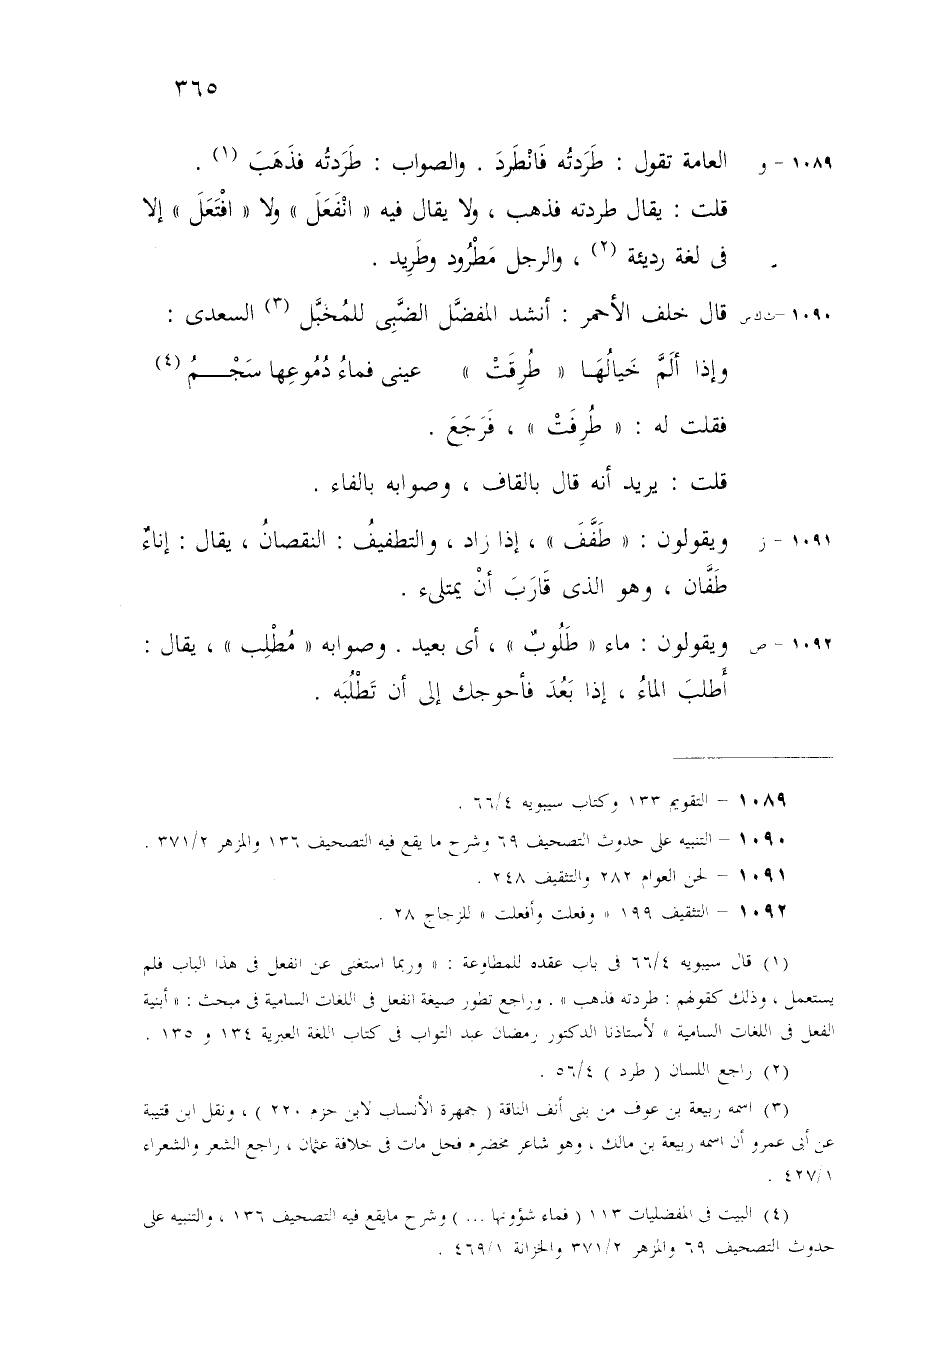 ٣٦٥
١٠٨٩ - و العامة تقول : طَرَدتُه فَانْطَردَ . والصواب : طَرَدتُه فذَهَبَ (١) .
قلت : يقال طردته فذهب ، ولا يقال فيه « انْفَعَلَ » ولا « افْتَعَلَ » إلا
فى لغة رديئة (٢) ، والرجل مَطْرُود وطَرِيد .
١٠٩٠ - ث ك ص قال خلف الأحمر : أنشد المفضَّل الضَّبِّى للمُخَبَّل (٣) السعدى :
وإذا ألَمَّ خَيالُهَا « طُرِقَتْ » عينى فماءُ دُمُوعِها سَجْـــمُ (٤)
فقلت له : « طُرِفَتْ » ، فَرَجَعَ .
قلت : يريد أنه قال بالقاف ، وصوابه بالفاء .
١٠٩١ - ز ويقولون : « طَفَّفَ » ، إذا زاد ، والتطفيفُ : النقصانُ ، يقال : إناءٌ
طَفَّان ، وهو الذى قَارَبَ أنْ يمتلىء .
١٠٩٢ - ص ويقولون : ماء « طَلُوبٌ » ، أى بعيد . وصوابه « مُطْلِب » ، يقال :
أَطلبَ الماءُ ، إذا بَعُدَ فأحوجك إلى أن تَطْلُبَه .
١٠٨٩ - التقويم ١٣٣ وكتاب سيبويه ٦٦/٤ .
١٠٩٠ - التنبيه على حدوث التصحيف ٦٩ وشرح ما يقع فيه التصحيف ١٣٦ والمزهر ٣٧١/٢ .
١٠٩١ - لحن العوام ٢٨٢ والتثقيف ٢٤٨ .
١٠٩٢ - التثقيف ١٩٩ « وفعلت وأفعلت » للزجاج ٢٨ .
(١) قال سيبويه ٦٦/٤ فى باب عقده للمطاوعة : « وربما استغنى عن انفعل فى هذا الباب فلم
يستعمل ، وذلك كقولهم : طردته فذهب » . وراجع تطور صيغة انفعل فى اللغات السامية فى مبحث : « أبنية
الفعل فى اللغات السامية » لأستاذنا الدكتور رمضان عبد التواب فى كتاب اللغة العبرية ١٣٤ و ١٣٥ .
(٢) راجع اللسان ( طرد ) ٥٦/٤ .
(٣) اسمه ربيعة بن عوف من بنى أنف الناقة ( جمهرة الأنساب لابن حزم ٢٢٠ ) ، ونقل ابن قتيبة
عن أبى عمرو أن اسمه ربيعة بن مالك ، وهو شاعر مخضرم فحل مات فى خلافة عثمان ، راجع الشعر والشعراء
٤٢٧/١ .
(٤) البيت فى المفضليات ١١٣ ( فماء شؤونها ... ) وشرح مايقع فيه التصحيف ١٣٦ ، والتنبيه على
حدوث التصحيف ٦٩ والمزهر ٣٧١/٢ والخزانة ٤٦٩/١ .